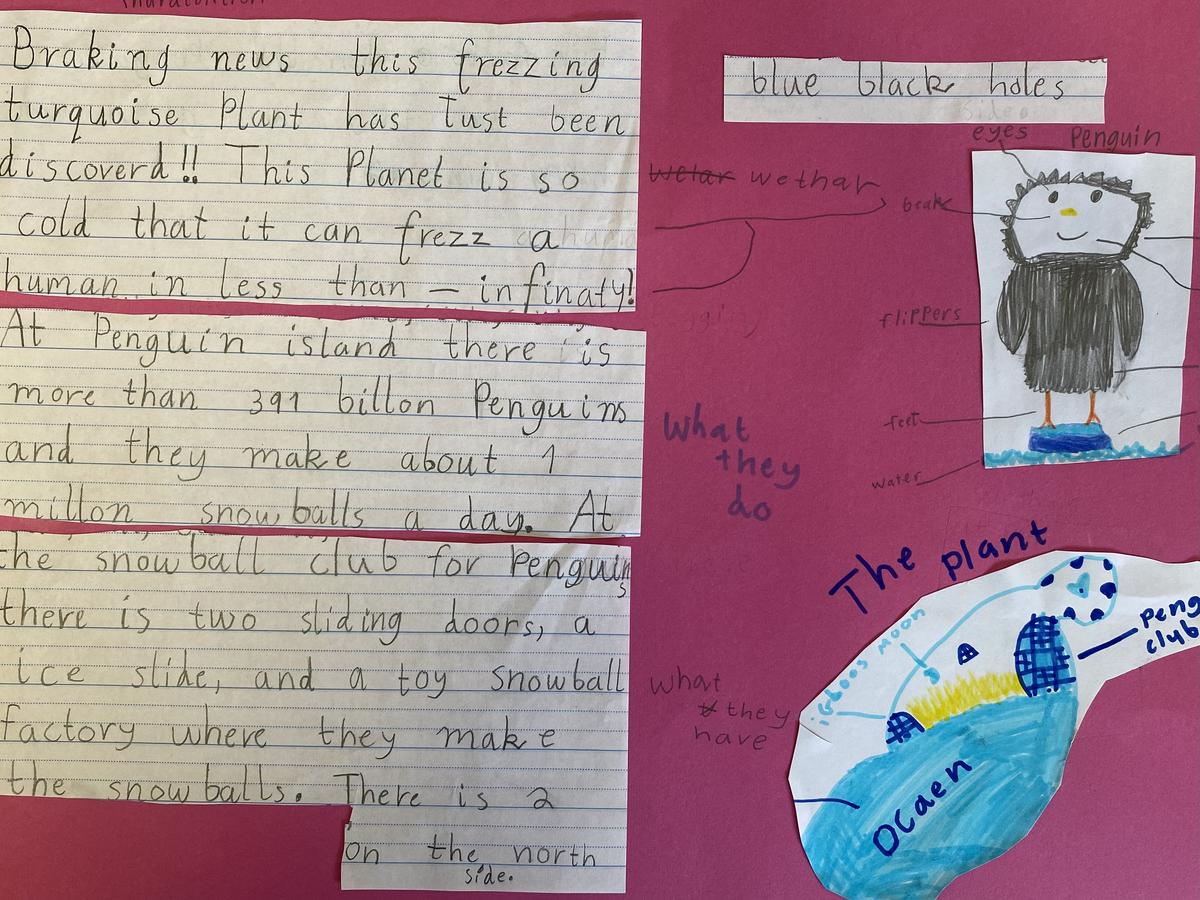 Braking news this frezzing
turquoise Plant has Tust been
discoverd!! This Planet is so
cold that it can frezz a
human in less than – infinaty!
At Penguin island there is
more than 391 billon Penguins
and they make about 1
millon snowballs a day. At
the snowball club for Penguins
there is two sliding doors, a
ice slide, and a toy snowball
factory where they make
the snowballs. There is 2
on the north
side.
blue black holes
eyes
Penguin
wethar
brak
flippers
feet
water
What
they
do
The plant
igloos
Moon
Peng
club
what
they
have
Ocaen